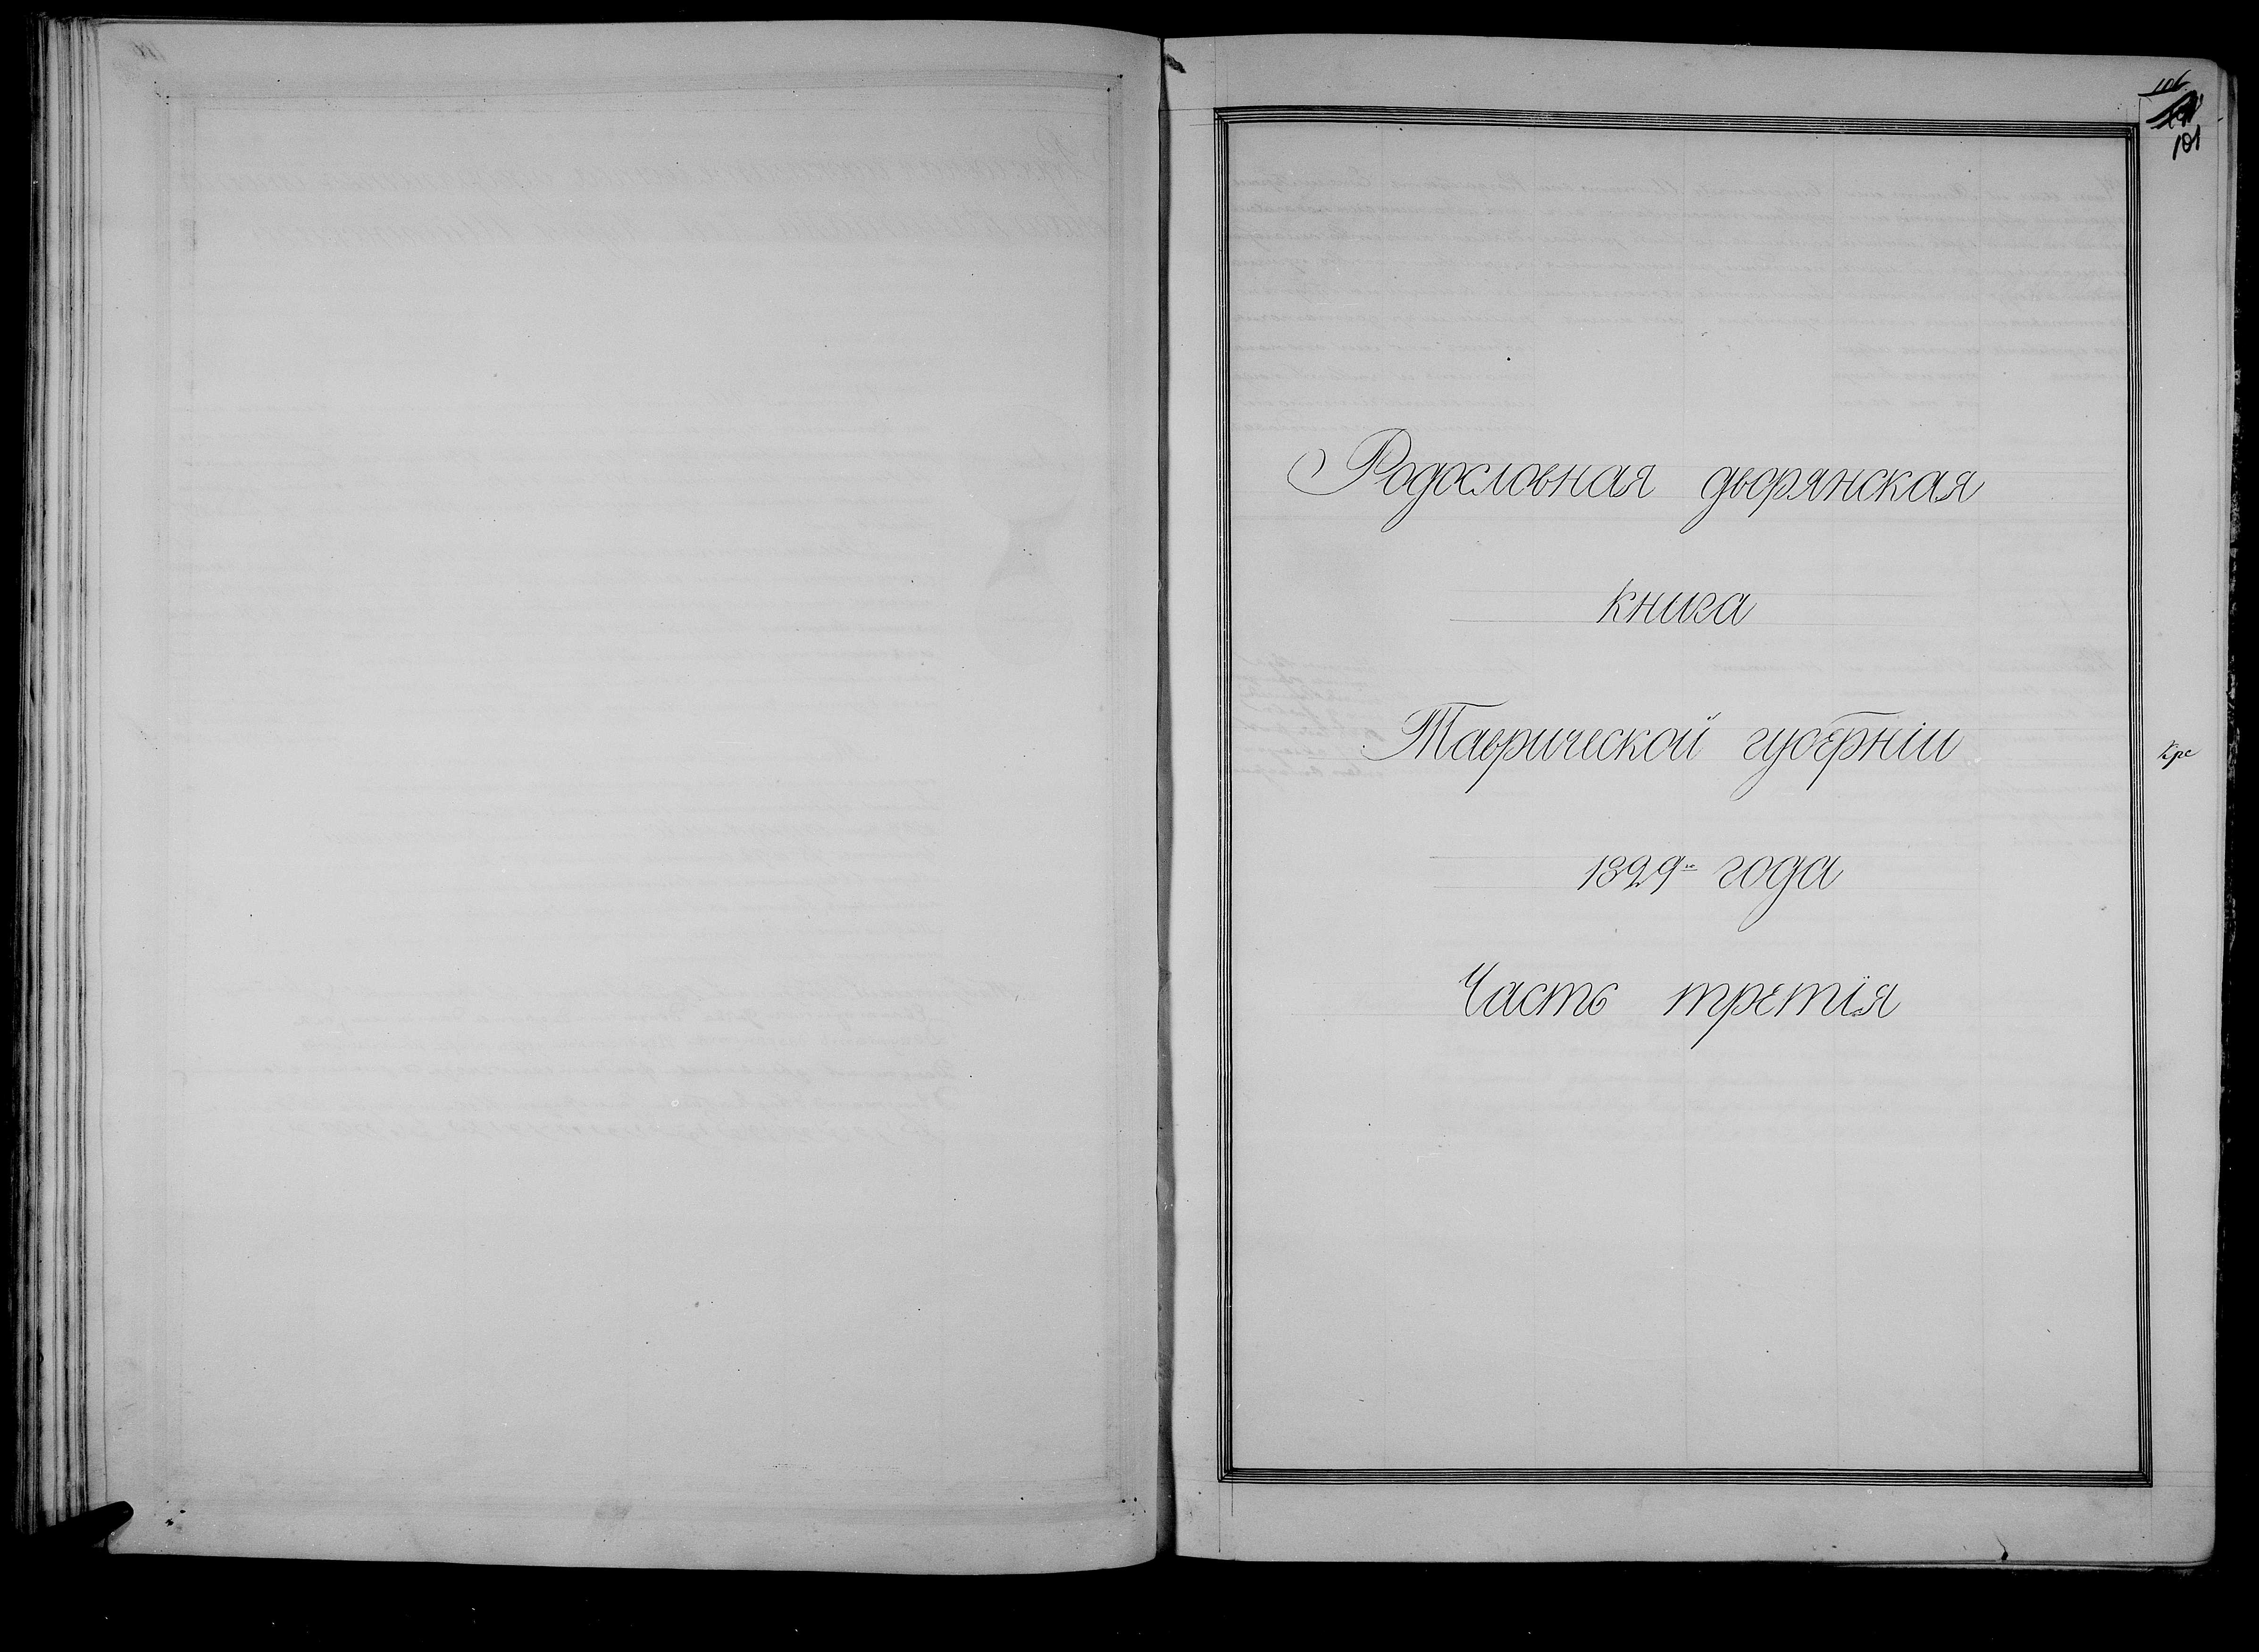 106
101
Родословная дворянская
книга
Таврической губерніи
1829го года
Часть третія
Кре